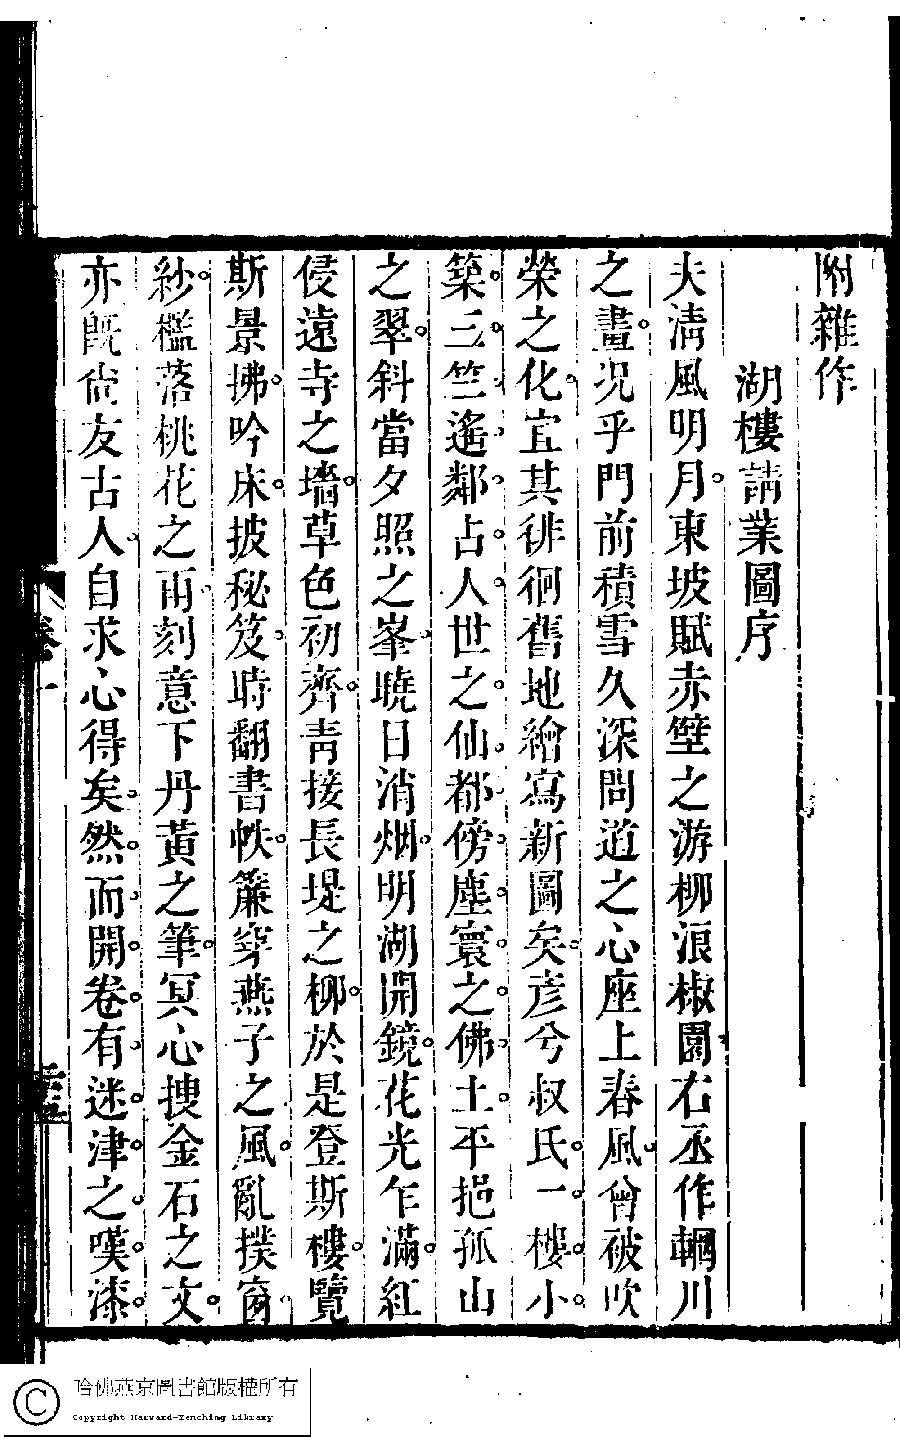 附雜作
湖樓請業圖序
夫淸風明月。東坡賦赤壁之游柳浪椒園右丞作輞川
之畫。況乎門前積雪久深問道之心座上春風。曾被吹
榮之化。宜其徘徊舊地繪寫新圖矣。彥兮叔氏。一。樓。小。
築。三。竺。遙。鄰。占。人。世之。仙。都。傍。塵。寰。之。佛。土。平挹孤山
之翠。斜當夕照之峯。曉日消烟。明湖開鏡。花光乍滿。紅
侵遠寺之墻。草色初齊。靑接長堤之柳。於是登斯樓。覽
斯景拂。吟床。披秘笈。時翻書帙。簾穿燕子之風。亂撲窗。
紗。檻落桃花之雨。刻意下丹黃之筆。冥心搜金石之文。
亦旣尙友古人。自求心得矣。然。而。開。卷。有。迷。津。之。嘆。漆。
卷一
哈佛燕京圖書館版權所有
Copyright Harvard-Yenching Library